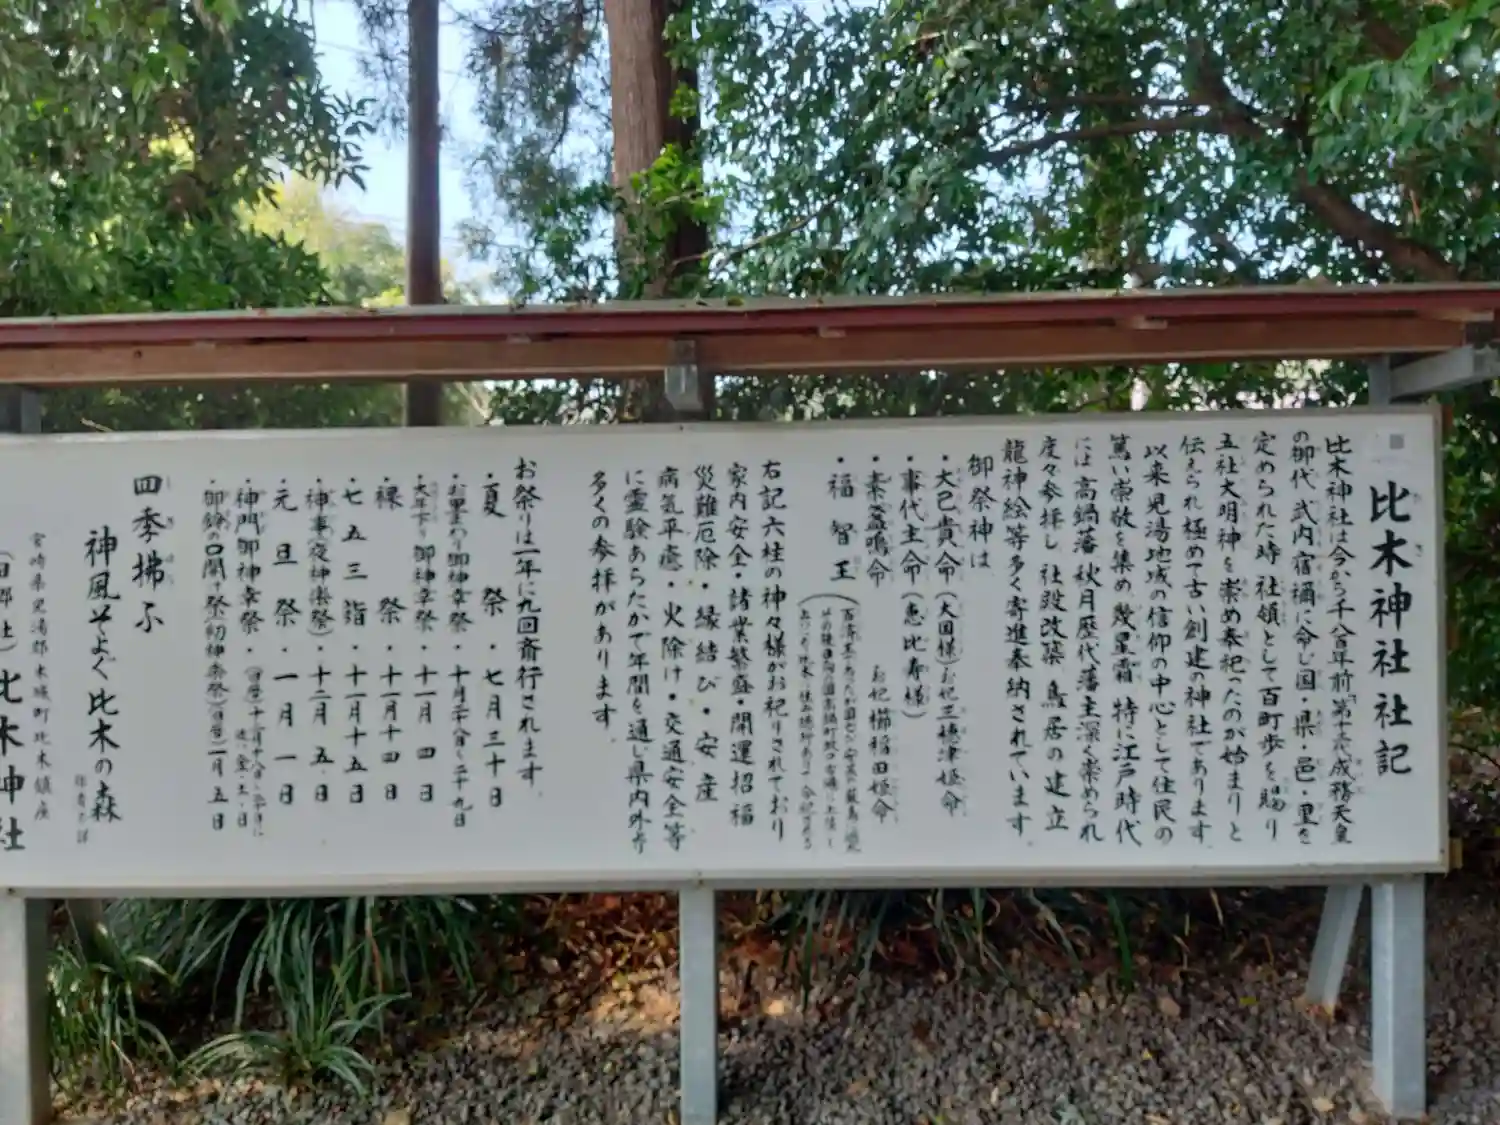 比木神社 社記
比木神社は今から千八百年前「第十三代成務天皇
の御代 武内宿禰に命じ国・県・邑・里を
定められた時 社領として百町歩を賜り
五社大明神を崇め奉祀ったのが始まりと
伝えられ極めて古い創建の神社であります。
以来児湯地域の信仰の中心として住民の
篤い崇敬を集め 幾星霜 特に江戸時代
には 高鍋藩 秋月歴代藩主深く崇められ
度々参拝し 社殿改築 鳥居の建立
龍神絵等多く寄進奉納されています。
御祭神は
・大己貴命(大国様)お妃三穂津姫命
・事代主命(恵比寿様)
・素盞嗚命 お妃 櫛稲田姫命
・福智王
右記六柱の神々様がお祀りされており
家内安全・諸業繁盛・開運招福
災難厄除・縁結び・安産
病気平癒・火除け・交通安全等
に霊験あらたかで年間を通し県内外より
多くの参拝があります。
お祭りは一年に九回斎行されます。
・夏祭・七月三十日
・お里まわり御神幸祭・十月二十八日〜二十九日
・大年下り御神幸祭・十一月四日
・裸祭・十一月十四日
・七五三詣・十一月十五日
・神事(夜神楽祭)・十二月五日
・元旦祭・一月一日
・神門御神幸祭・
・御鈴の口開・祭(初神楽祭)(旧暦)一月五日
四季拂ふ
神風そよぐ 比木の森
宮崎県児湯郡木城町比木鎮座
比木神社